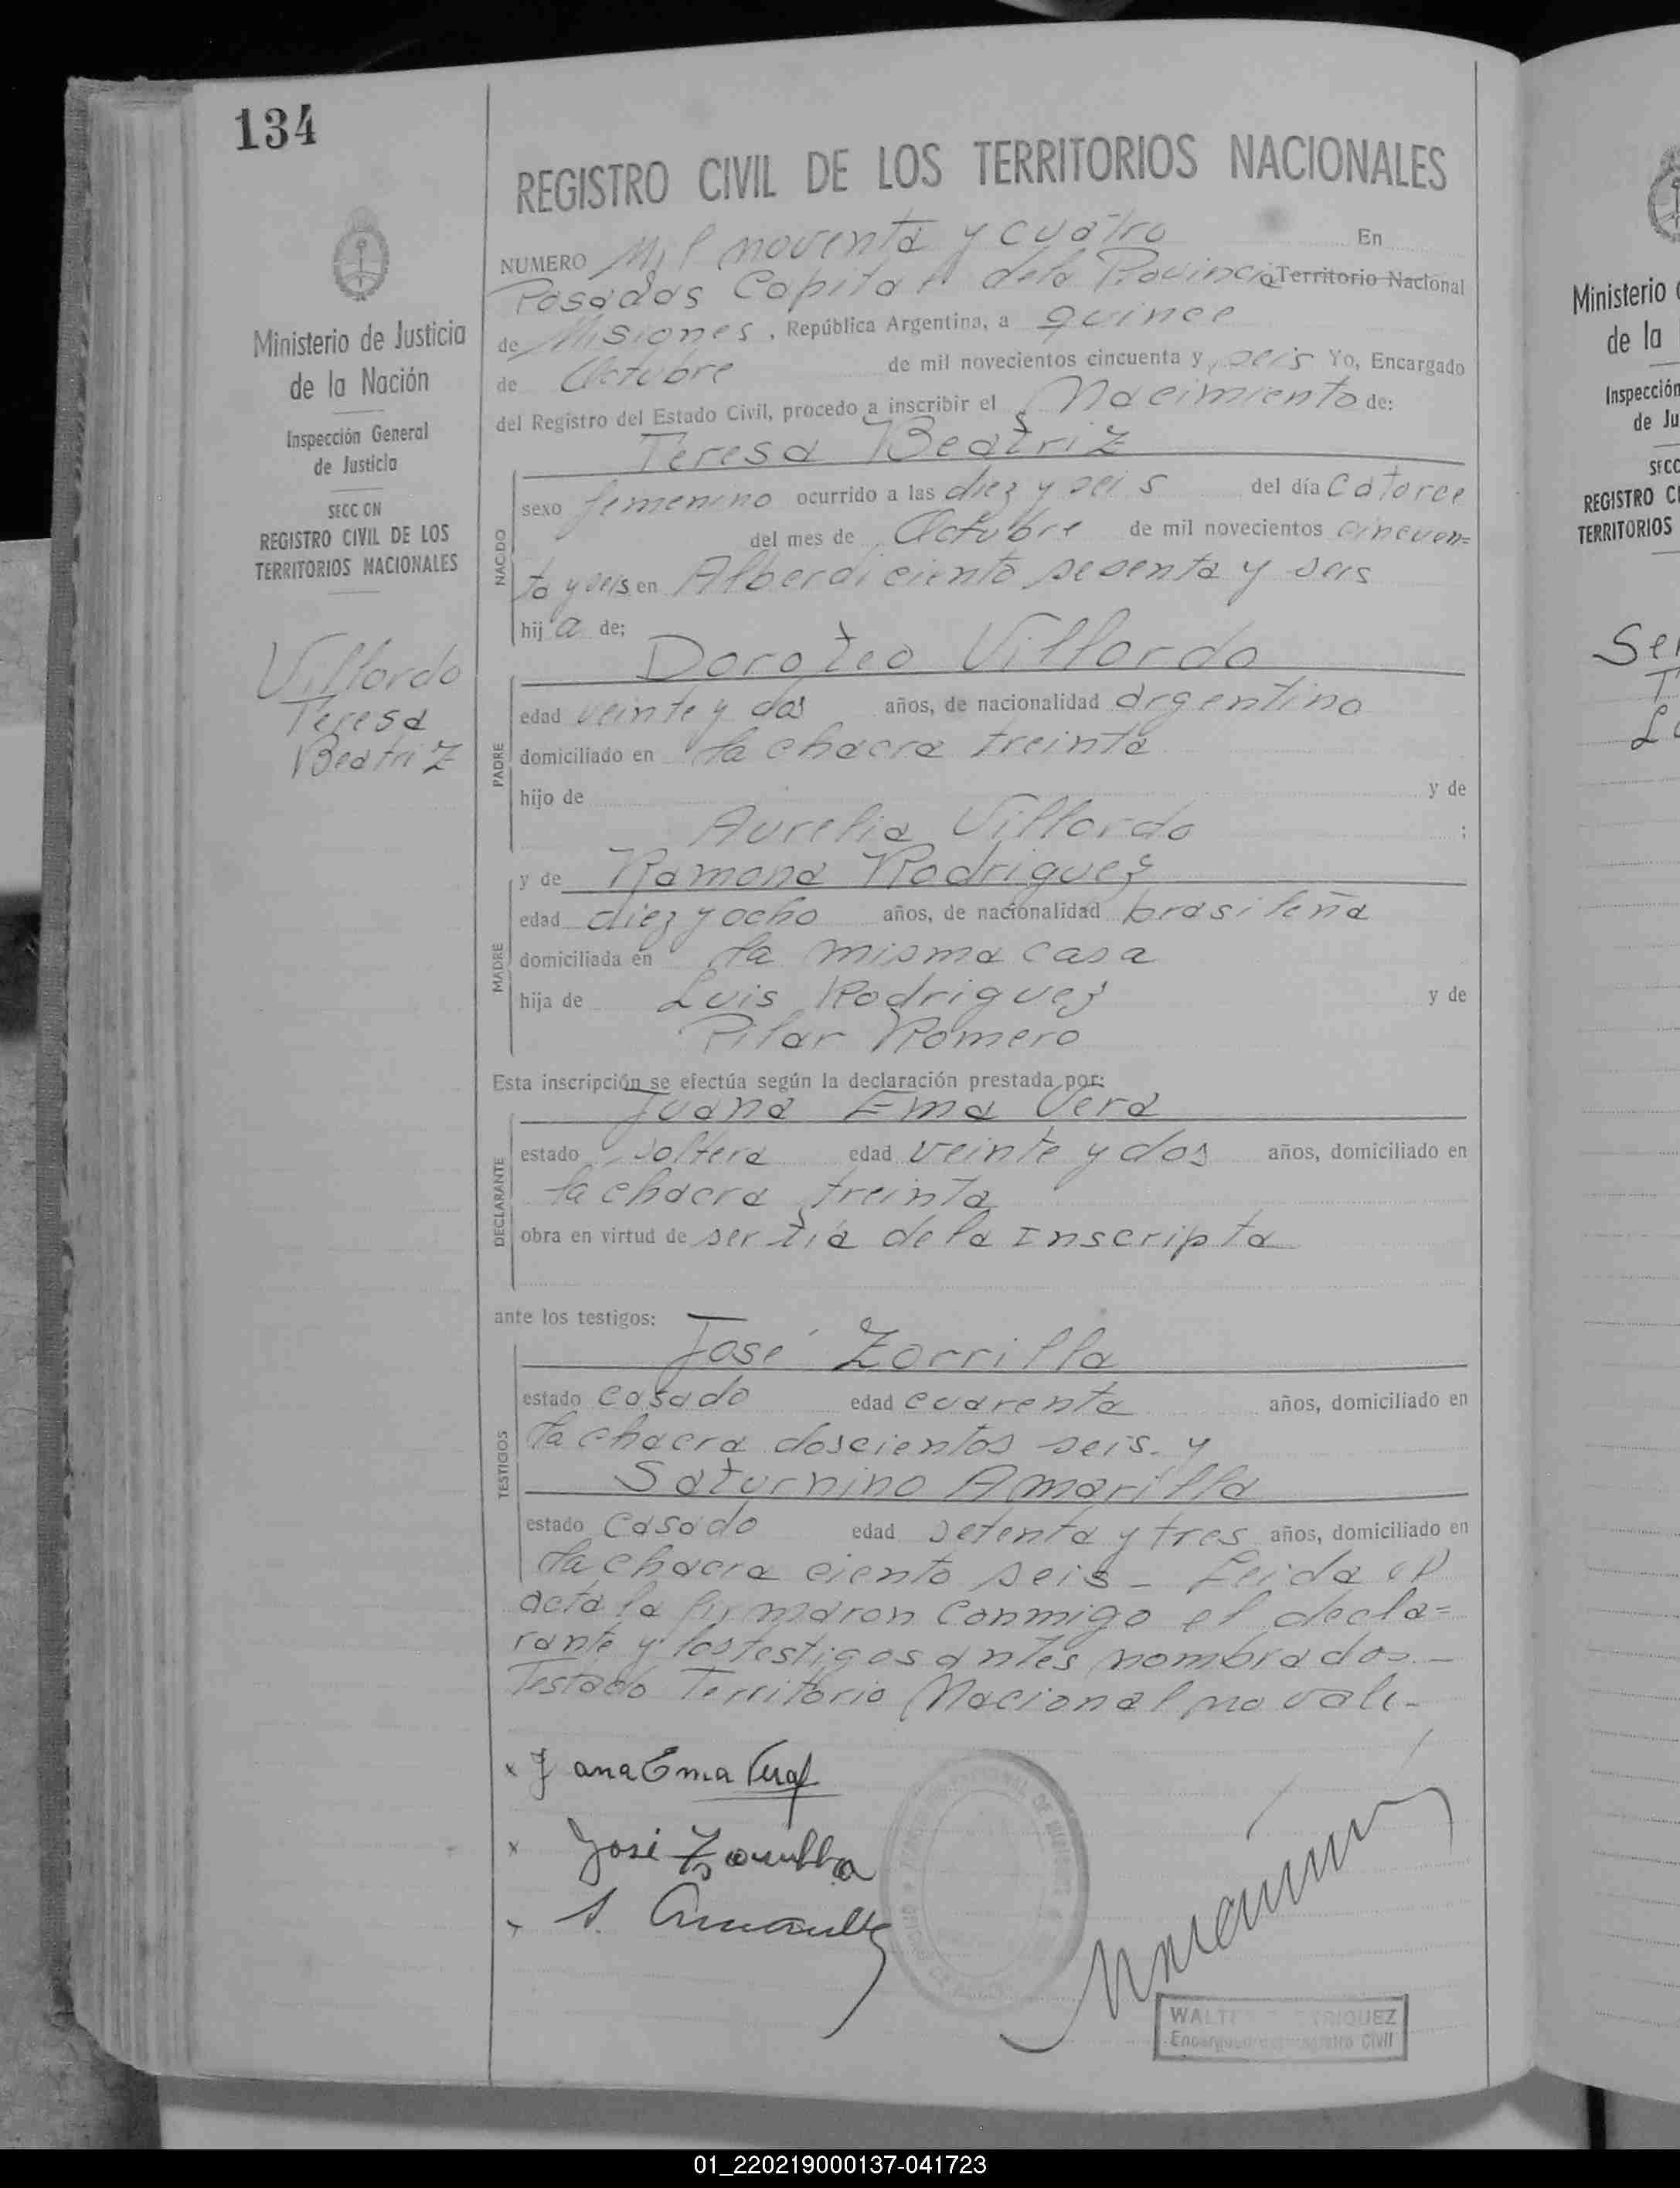 134
REGISTRO CIVIL DE LOS TERRITORIOS NACIONALES
Ministerio de Justicia
de la Nación
Inspección General
de Justicia
SECC ON
REGISTRO CIVIL DE LOS
TERRITORIOS NACIONALES
Villordo
Teresa
Beatriz
NUMERO Mil noventa y cuatro En
Posadas Capital dela Provincia Territorio Nacional
de Misiones, República Argentina, a quince
de Octubre de mil novecientos cincuenta y seis Yo, Encargado
del Registro del Estado Civil, procedo a inscribir el Nacimiento de:
Teresa Beatriz
NACIDO
sexo femenino ocurrido a las diez y seis del día catorce
del mes de Octubre de mil novecientos cincuen=
ta y seis en Alberdi ciento sesenta y seis
hij a de:
Doroteo Villordo
PADRE
edad veinte y dos años, de nacionalidad argentino
domiciliado en la chacra treinta
hijo de y de
Aurelia Villordo ;
y de Ramona Rodriguez
MADRE
edad diez y ocho años, de nacionalidad brasileña
domiciliada en la misma casa
hija de Luis Rodriguez y de
Pilar Romero
Esta inscripción se efectúa según la declaración prestada por:
Juana Ema Vera
DECLARANTE
estado soltera edad veinte y dos años, domiciliado en
la chacra treinta
obra en virtud de ser tia de la Inscripta
ante los testigos:
José Zorrilla
TESTIGOS
estado casado edad cuarenta años, domiciliado en
la chacra doscientos seis. y
Saturnino Amarilla
estado casado edad setenta y tres años, domiciliado en
la chacra ciento seis - Leida el
acta la firmaron conmigo el decla=
rante y los testigos antes nombrados.-
Testado Territorio Nacional no vale-
x Juana Ema Vera
x José Zorrilla
x S. Amarilla
Encargado del Registro Civil
Ministerio
de la
Inspección
de Ju
SECC
REGISTRO CI
TERRITORIOS
01_220219000137-041723